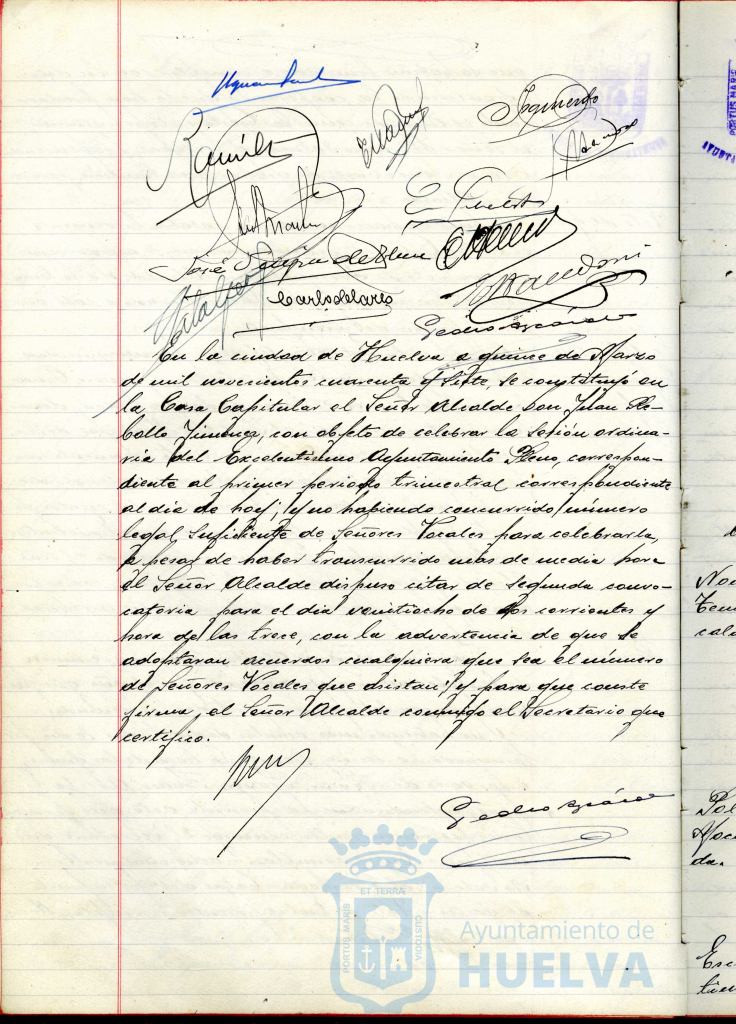 Ramírez
Izquierdo
E. Puerto
José
Carlos del Arco
Pedro
En la ciudad de Huelva a quince de Marzo
de mil novecientos cuarenta y siete, se constituyó en
la Casa Capitular el Señor Alcalde Don Juan Re-
bollo Jiménez, con objeto de celebrar la sesión ordina-
ria del Excelentísimo Ayuntamiento Pleno, correspon-
diente al primer periodo trimestral correspondiente
al día de hoy; y no habiendo concurrido número
legal suficiente de Señores Vocales para celebrarla,
a pesar de haber transcurrido más de media hora
el Señor Alcalde dispuso citar de segunda convo-
catoria para el día veintiocho de los corrientes y
hora de las trece, con la advertencia de que se
adoptaran acuerdos cualquiera que sea el número
de Señores Vocales que asistan; y para que conste
firma el Señor Alcalde conmigo el Secretario que
certifico.
Pedro
ET TERRA
PORTUS MARIS
CUSTODIA
Ayuntamiento de
HUELVA